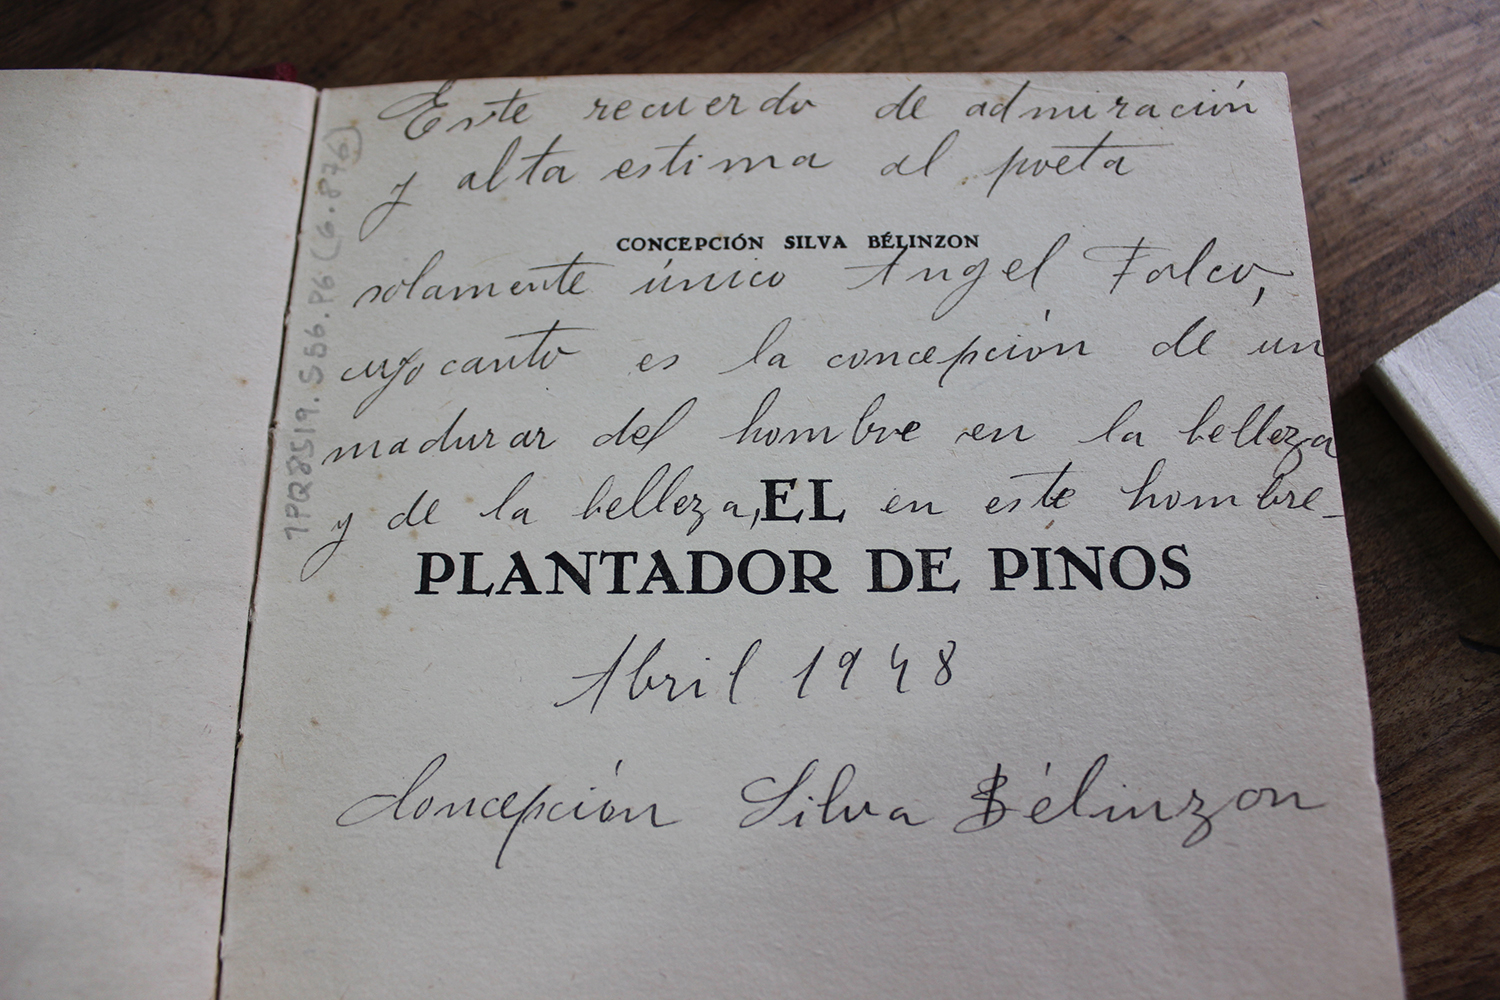 Este recuerdo de admiración
y alta estima al poeta
CONCEPCIÓN SILVA BÉLINZON
solamente único Angel Falco,
cuyo canto es la concepción de un
madurar del hombre en la belleza
y de la belleza, en este hombre_
EL
PLANTADOR DE PINOS
Abril 1948
Concepción Silva Bélinzon
7PQ8519.S56.P6(6.876)